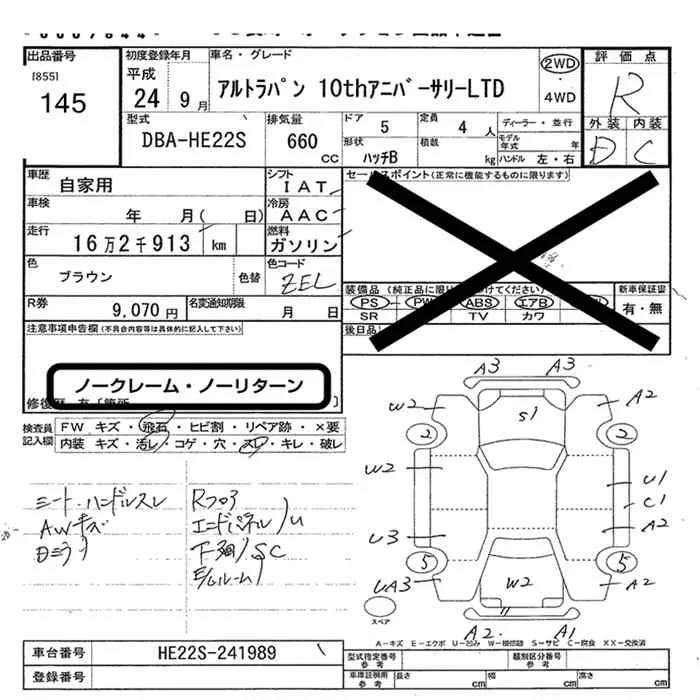 出品番号 初度登録年月 車名・グレード 評価点
[855] 平成 アルトラパン 10thアニバーサリーLTD 2WD R
145 24年 9月 4WD 外装 内装
型式 排気量 ドア 5 定員 4人 ディーラー・並行 D C
DBA-HE22S 660 CC 形状 ハッチB 積載 kg モデル年式 年
ハンドル 左・右
車歴 自家用 シフト IAT セールスポイント(正常に機能するものに限ります)
車検 年 月( 日) 冷房 AAC
走行 16万2千913 km 燃料 ガソリン
色 ブラウン 色替 色コード ZEL
装備品 新車保証書
R券 9,070円 名変通知期限 月 日 PS PW ABS エアB 有・無
SR TV カワ
注意事項申告欄(不具合内容等は具体的に記入して下さい) 後日品
ノークレーム・ノーリターン
検査員 FW キズ・飛石・ヒビ割・リペア跡・×要
記入欄 内装 キズ・汚レ・コゲ・穴・スレ・キレ・破レ
A3 A3
W2 S1 A2
2 2
W2 U1
C1
U3 A2
5 5
UA3 W2 A2
A2 A1
シート・ハンドルスレ Rフロア
AWキズ エンドパネル U
下廻 SC
スペア
A-キズ E-エクボ U-凹み W-補修跡 S-サビ C-腐食 XX-交換済
車台番号 HE22S-241989 型式指定番号 参考 類別区分番号 参考
登録番号 車庫証明用 参考 長さ cm 幅 cm 高さ cm